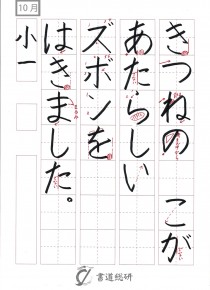 10月
きつねの こが
あたらしい
ズボンを
はきました。
小一
書道総研